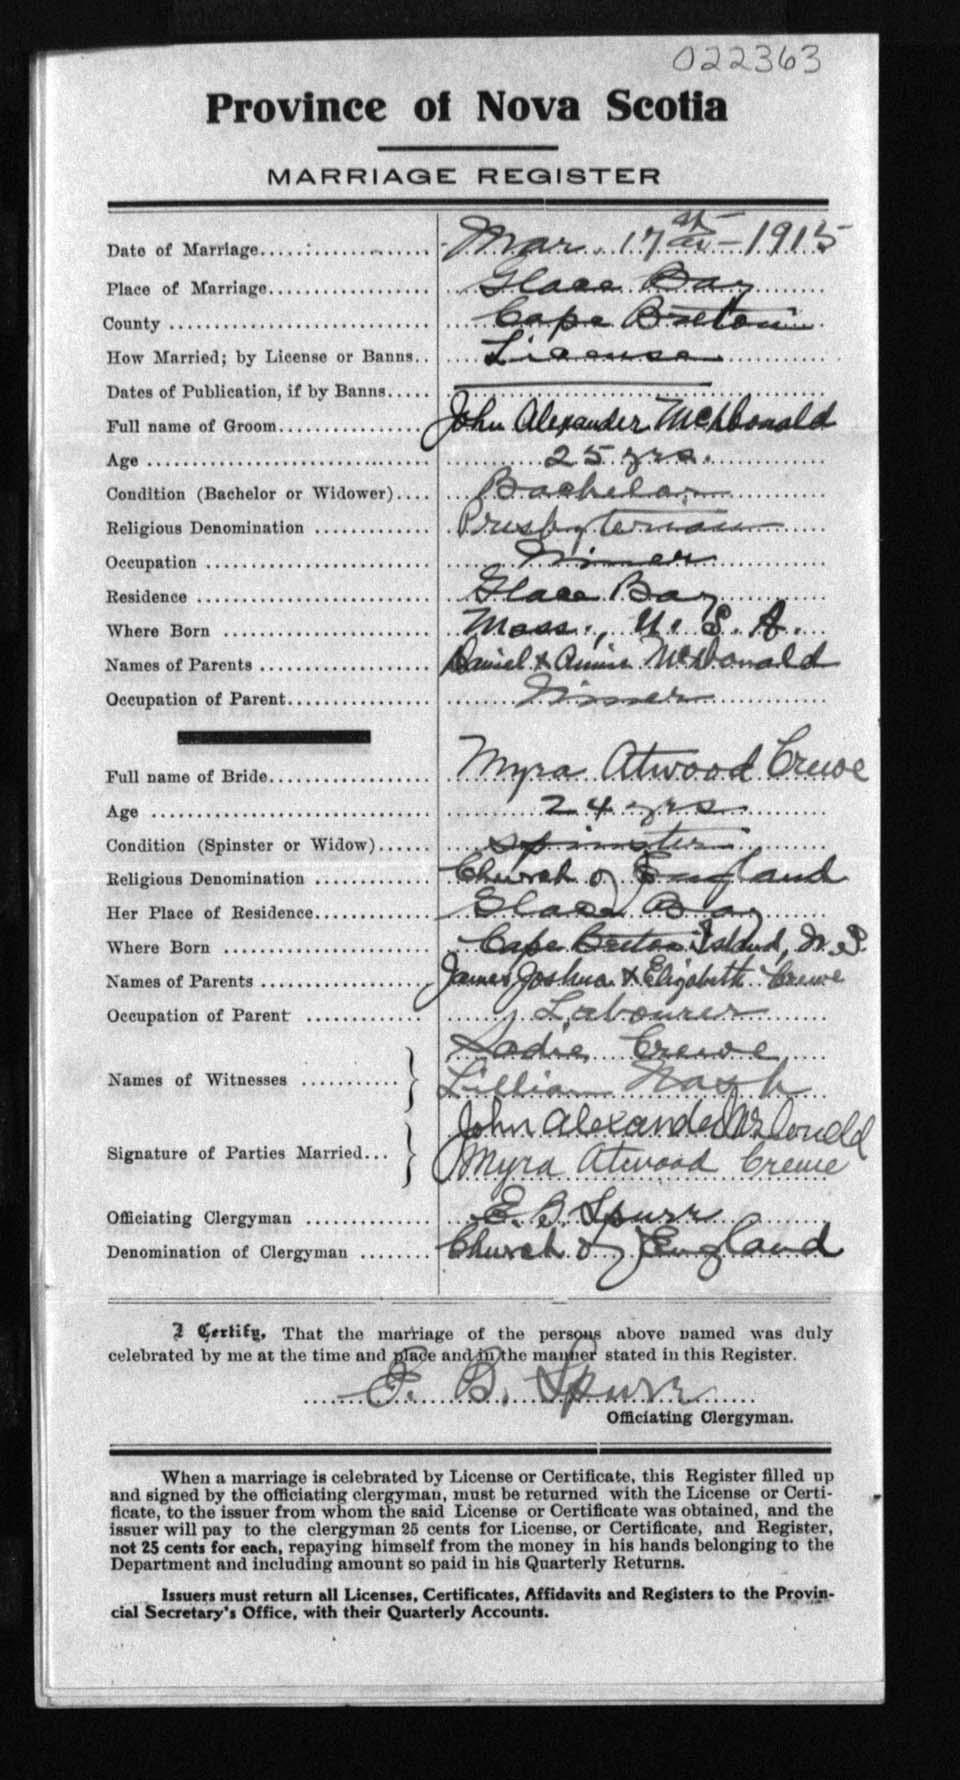 022363
Province of Nova Scotia
MARRIAGE REGISTER
Date of Marriage Mar. 17th - 1915
Place of Marriage Glace Bay
County Cape Breton
How Married; by License or Banns License
Dates of Publication, if by Banns
Full name of Groom John Alexander McDonald
Age 25 yrs.
Condition (Bachelor or Widower) Bachelor
Religious Denomination Presbyterian
Occupation Miner
Residence Glace Bay
Where Born Mass., U. S. A.
Names of Parents Daniel & Annie McDonald
Occupation of Parent Miner
Full name of Bride Myra Atwood Crewe
Age 24 yrs
Condition (Spinster or Widow) Spinster
Religious Denomination Church of England
Her Place of Residence Glace Bay
Where Born Cape Breton Island, N. S.
Names of Parents James Joshua & Elizabeth Crewe
Occupation of Parent Labourer
Sadie Crewe
Names of Witnesses }
Lillian Nash
John Alexander McDonald
Signature of Parties Married... }
Myra Atwood Crewe
Officiating Clergyman E. B. Spurr
Denomination of Clergyman Church of England
I Certify, That the marriage of the persons above named was duly
celebrated by me at the time and place and in the manner stated in this Register.
E. B. Spurr
Officiating Clergyman.
When a marriage is celebrated by License or Certificate, this Register filled up
and signed by the officiating clergyman, must be returned with the License or Certi-
ficate, to the issuer from whom the said License or Certificate was obtained, and the
issuer will pay to the clergyman 25 cents for License, or Certificate, and Register,
not 25 cents for each, repaying himself from the money in his hands belonging to the
Department and including amount so paid in his Quarterly Returns.
Issuers must return all Licenses, Certificates, Affidavits and Registers to the Provin-
cial Secretary's Office, with their Quarterly Accounts.